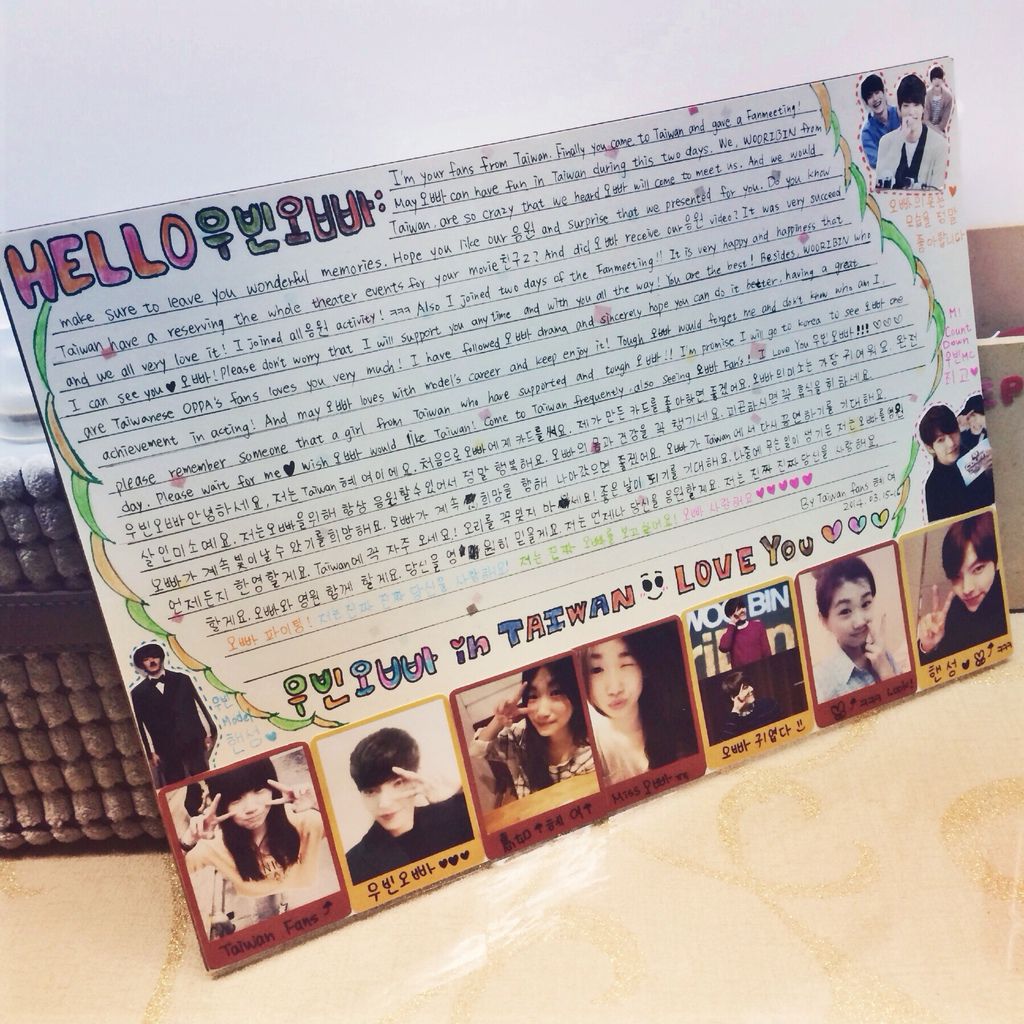 HELLO우빈오빠:
I'm your fans from Taiwan. Finally you came to Taiwan and gave a Fanmeeting!
May 오빠 can have fun in Taiwan during this two days. We, WOORIBIN from
Taiwan, are so crazy that we heard 오빠 will come to meet us. And we would
make sure to leave you wonderful memories. Hope you like our 응원 and surprise that we presented for you. Do you know
Taiwan have a reserving the whole theater events for your movie 친구2? And did 오빠 receive our 응원 video? It was very succeed
and we all very love it! I joined all 응원 activity! ㅋㅋㅋ Also I joined two days of the Fanmeeting!! It is very happy and happiness that
I can see you♥오빠! Please don't worry that I will support you anytime and with you all the way! You are the best! Besides, WOORIBIN who
are Taiwanese OPPA's fans loves you very much! I have followed 오빠 drama and sincerely hope you can do it better, having a great
achievement in acting! And may 오빠 loves with model's career and keep enjoy it! Tough 오빠 would forget me and don't know who am I,
please remember someone that a girl from Taiwan who have supported and tough 오빠!! I'm promise I will go to korea to see 오빠 one
day. Please wait for me♥ Wish 오빠 would like Taiwan! Come to Taiwan frequently, also seeing 오빠 Fans! I Love You 우빈오빠!!! ♡♡♡
우빈오빠 안녕하세요, 저는 Taiwan 혜여이에요. 처음으로 오빠에게 카드를 써요. 제가 만든 카드를 좋아하면 좋겠어요. 오빠의 미소는 가장 귀여워요 완전
살인미소예요. 저는 오빠을 위해 항상 응원할 수 있어서 정말 행복해요. 오빠의 건강을 꼭 챙기세요. 피곤하시면 꼭 휴식을 취하세요.
오빠가 계속 빛이 날 수 있기를 희망해요. 오빠가 계속 희망을 향해 나아갔으면 좋겠어요. 오빠가 Taiwan에서 다시 공연하기를 기대해요.
언제든지 환영할게요. Taiwan에 꼭 자주 오세요! 우리를 꼭 잊지 마세요! 좋은 날이 되기를 기대해요.
할게요. 오빠와 영원 함께 할게요. 당신을 영원히 믿을게요. 저는 언제나 당신을 응원할게요. 저는 진짜 진짜 당신을 사랑해요.
오빠 파이팅! 저는 진짜 진짜 당신을 사랑해요! 저는 진짜 오빠를 보고싶어요! 오빠 사랑해요♥♥♥♥♥
By Taiwan fans 혜여
2014. 03.15-16
우빈오빠 in TAIWAN LOVE YOU ♡♡♡
오빠의 웃는
모습을 정말
좋아합니다
M!
Count
Down
우빈MC
최고♥
우빈
Model
핸섬♥
Taiwan Fans
우빈오빠 ♥♥♥
혜여
Miss 오빠 ㅠㅠ
WOO BIN
오빠 귀엽다!!
ㅋㅋㅋ Look!
핸섬 ♥ ㅋㅋㅋ